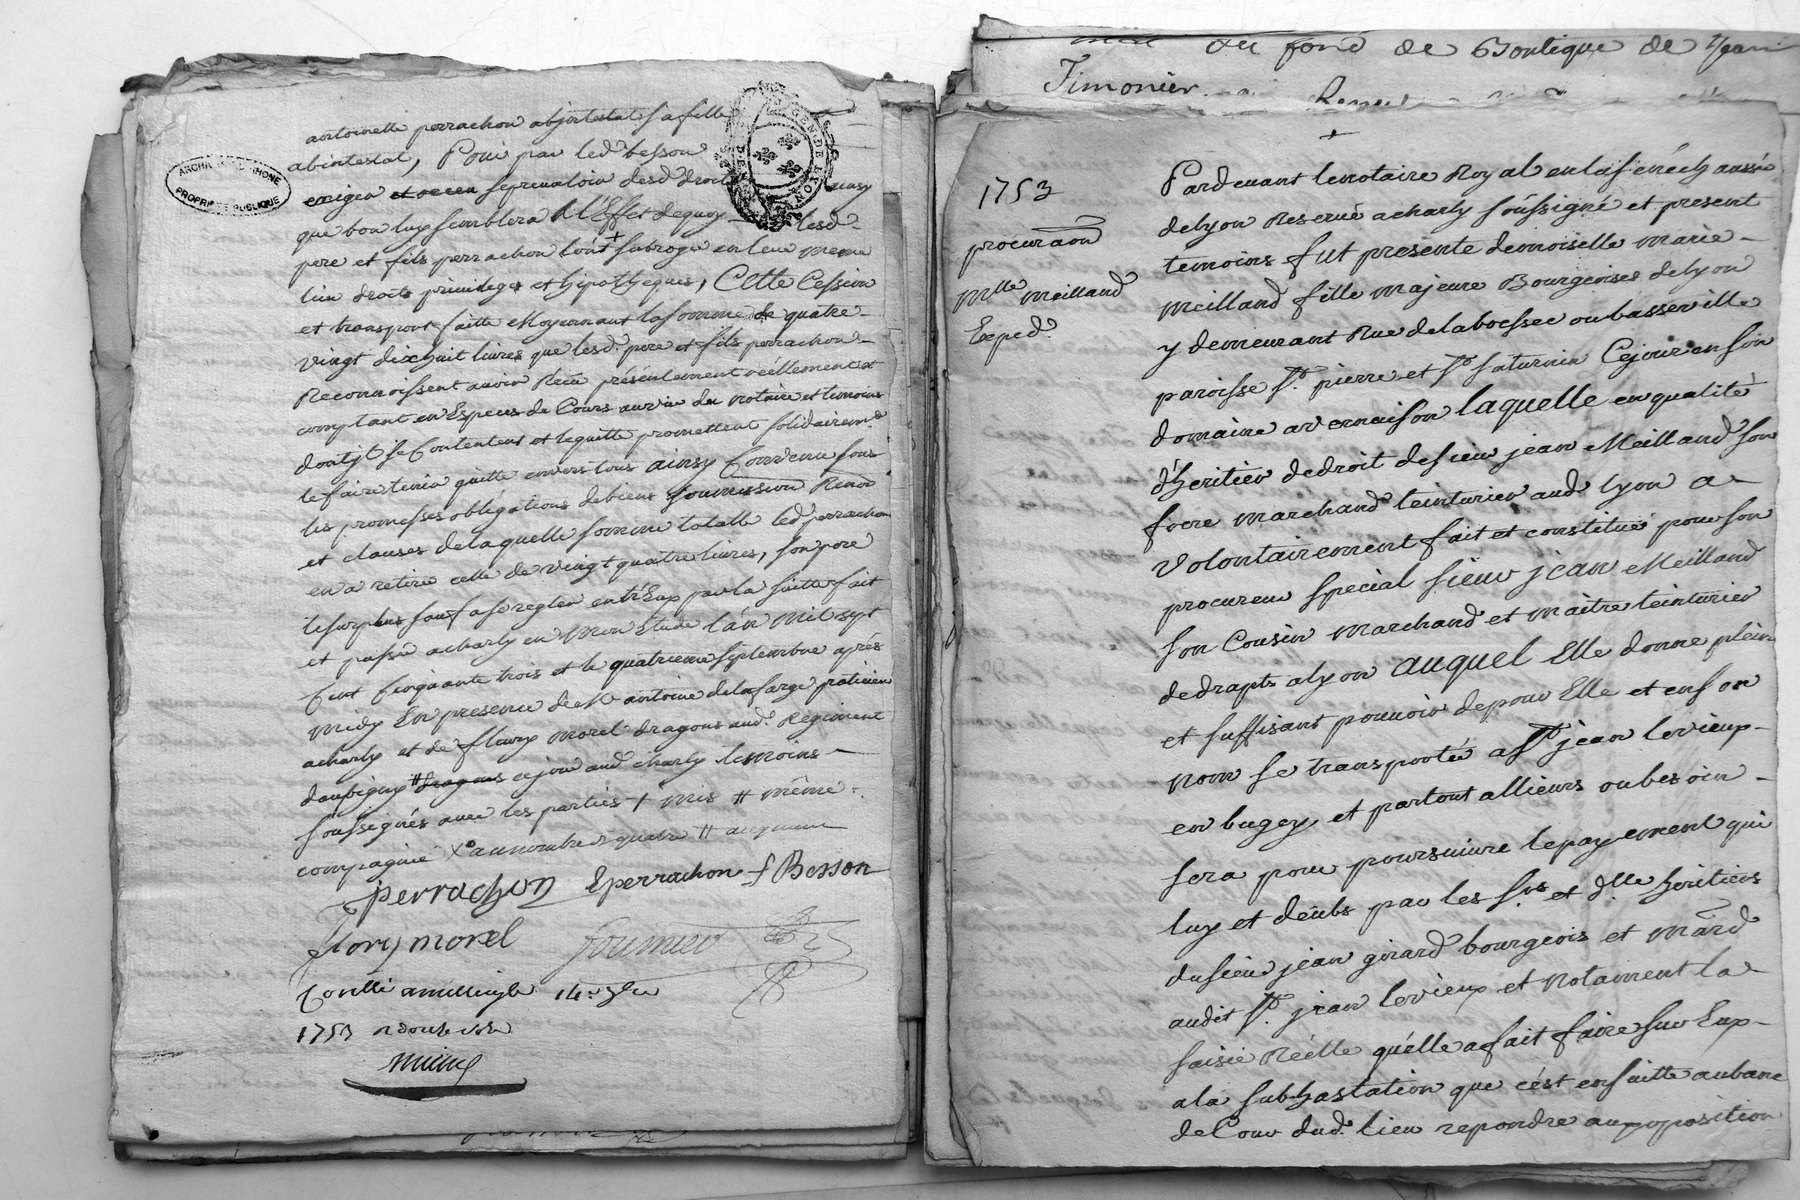 antoinette perrachon abjntestat sa fille
abintestat, Pour par led besson
exiger et se prevaloir desd droits ainsy
que bon luy semblera A l'Effet dequoy lesd.
pere et fils perrachon l'ont + subrogé en leur meme
lieu droits privileges et hipotheques, Cette Cession
et transport faitte Moyennant la somme de quatre
vingt dix huit livres que lesd. pere et fils perrachon
Reconnoissent avoir Reçu présentement réellement et
comptant en Especes de Cours au vu du notaire et temoins
dont jls se Contentent et le quitte promettent solidairemt.
le faire tenir quitte envers tous ainsy Convenu sous
les promesses obligations de biens soumission Renon
et clauses de laquelle somme totalle led perrachon
en a retiré celle de vingt quatre livres, son pere
le surplus sauf a se regler entr'Eux par la suitte fait
et passé a charly en Mon Etude l'an Mil sept
Cent Cinquante trois et le quatrieme septembre après
midy En presence de Me antoine delafarge praticien
a charly et de fleury morel dragons aud. Regiment
daubigny # dragons cejour aud charly temoins
soussignés avec les parties + mis # même
compagnie X au nombre de quatre # augment
Perrachon Eperrachon f Besson
flory morel fournier
Conllé a millery le 14e 7bre
1753 R douze sols
ARCHIVES RHONE
PROPRIETE PUBLIQUE
GEN. DE LYON
au fond de Boutique de Jean
Timonier
+
1753
procuraon
Mlle Meilland
Exped.
Pardevant le notaire Royal en la sénéchaussée
de lyon Reservé a charly soussigné et present
temoins fut presente demoiselle marie
Meilland fille majeure Bourgeoise de lyon
y demeurant Rue de la boessee ou basseville
paroisse St. pierre et St saturnin Cejour en son
domaine a vernaison laquelle en qualité
d'héritier de droit de sieur jean Meilland son
frere marchand teinturier aud lyon a
volontairement fait et constitué pour son
procureur special sieur jean Meilland
son Cousin Marchand et maitre teinturier
de drapts a lyon auquel Elle donne plein
et suffisant pouvoir de pour Elle et en son
nom se transporter a St jean le vieux
en bugey et partout allieurs ou besoin
sera pour poursuivre le payement qui
luy et deubs par les Srs et dlle heritiers
du sieur jean girard bourgeois et mard
audit St. jean le vieux et Notament la
saisie Réelle qu'elle a fait faire sur Eux
a la subhastation que c'est ensuitte au banc
de Cour dud. lieu repondre aux oposition